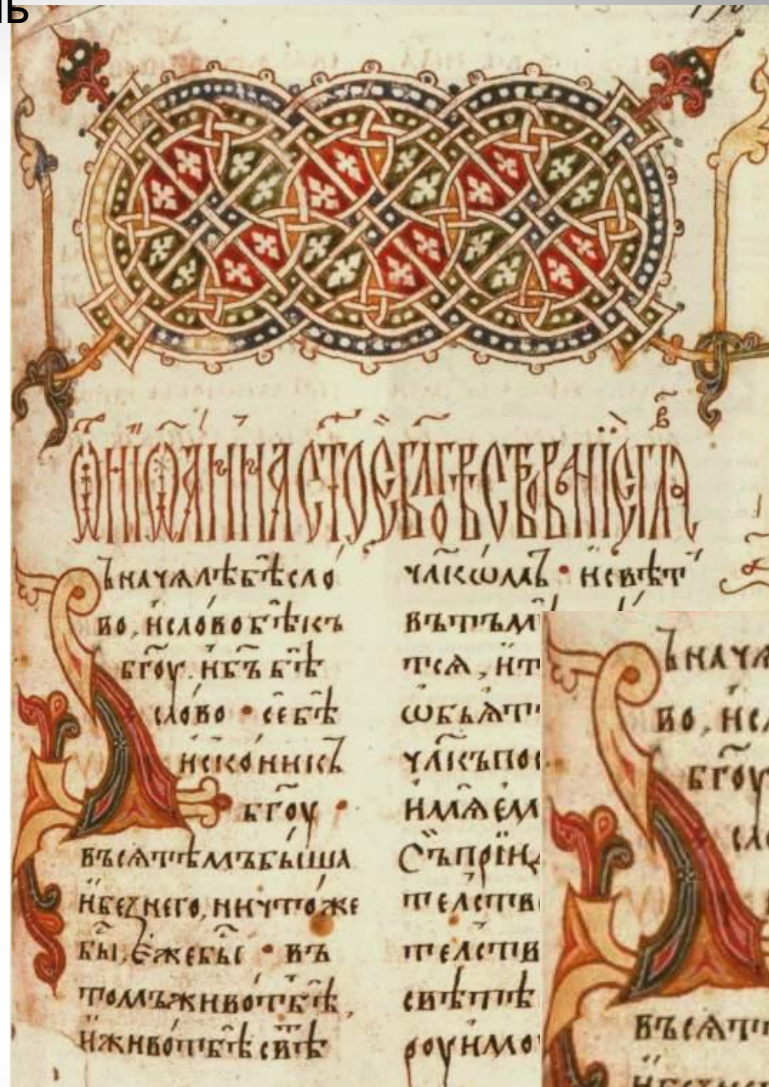 нь
ѿ іѡанна стое бл҃говѣствованїе гла҃в
ъначѧлѣбѣсло
во, ислово бѣкъ
бг҃оу. ибъ҃ бѣ
слово • себѣ
исконикъ
бг҃оу •
въсѧтѣмъбышѧ
ибезнего, ничтоже
бы҃, ежебыс • въ
томъжывотъбѣ
иживотъбѣсвѣ
чл҃кѡмъ • исвѣт
вътъм
тсѧ, ит
ѡбьѧт
чл҃къпос
имѧем
съпрїид
телств
телств
свѣтѣ
роуимо
ъначѧ
во, исл
бг҃оу
сло
въсѧт